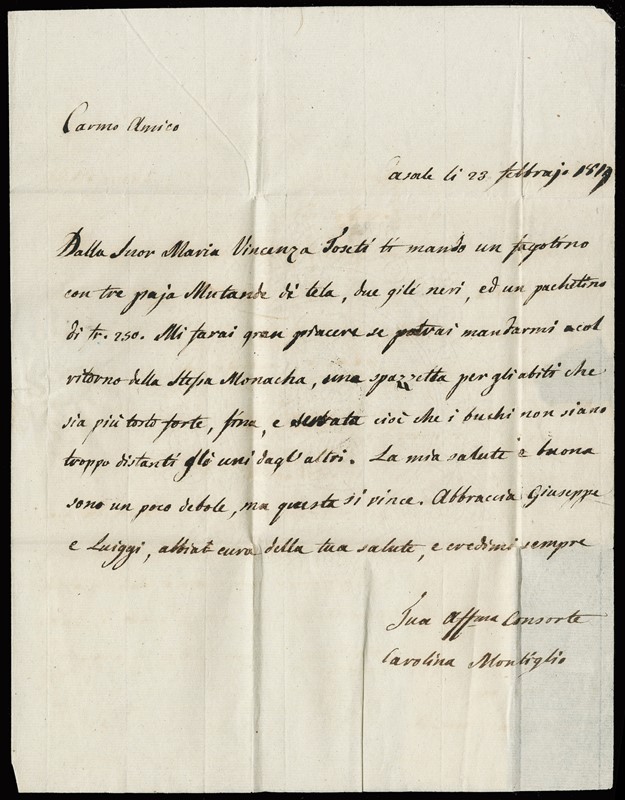 Carmo Amico
Casale li 23 febbrajo 1819
Dalla Suor Maria Vincenza Toseti ti mando un fagotino
con tre paja Mutande di tela, due gilé neri, ed un pachetino
di fr. 250. Mi farai gran piacere se potrai mandarmi acol
ritorno della stessa Monacha, una spazzetta per gli abiti che
sia più tosto forte, fina, e serrata cioè che i buchi non siano
troppo distanti gli uni dagl'altri. La mia salute è buona
sono un poco debole, ma questa si vince. Abbraccia Giuseppe
e Luiggi, abbiat cura della tua salute, e credimi sempre
Tua Affma Consorte
Carolina Montiglio